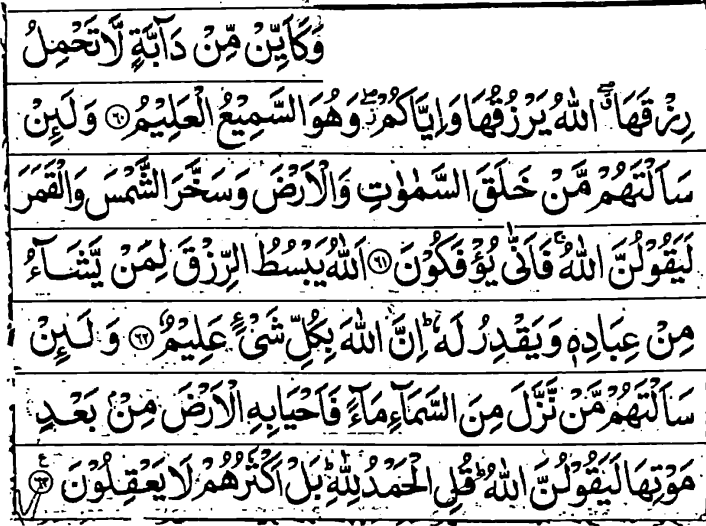 وَكَاَيِّنْ مِّنْ دَآبَّةٍ لَّا تَحْمِلُ
رِزْقَهَا ۖ اللّٰهُ يَرْزُقُهَا وَاِيَّاكُمْ ۖ وَهُوَ السَّمِيْعُ الْعَلِيْمُ ﴿۶۰﴾ وَلَىِٕنْ
سَاَلْتَهُمْ مَّنْ خَلَقَ السَّمٰوٰتِ وَالْاَرْضَ وَسَخَّرَ الشَّمْسَ وَالْقَمَرَ
لَيَقُوْلُنَّ اللّٰهُ ۚ فَاَنّٰى يُؤْفَكُوْنَ ﴿۶۱﴾ اَللّٰهُ يَبْسُطُ الرِّزْقَ لِمَنْ يَّشَآءُ
مِنْ عِبَادِهٖ وَيَقْدِرُ لَهٗ ؕ اِنَّ اللّٰهَ بِكُلِّ شَىْءٍ عَلِيْمٌ ﴿۶۲﴾ وَلَىِٕنْ
سَاَلْتَهُمْ مَّنْ نَّزَّلَ مِنَ السَّمَآءِ مَآءً فَاَحْيَا بِهِ الْاَرْضَ مِنْۢ بَعْدِ
مَوْتِهَا لَيَقُوْلُنَّ اللّٰهُ ؕ قُلِ الْحَمْدُ لِلّٰهِ ؕ بَلْ اَكْثَرُهُمْ لَا يَعْقِلُوْنَ ﴿۶۳﴾ ع